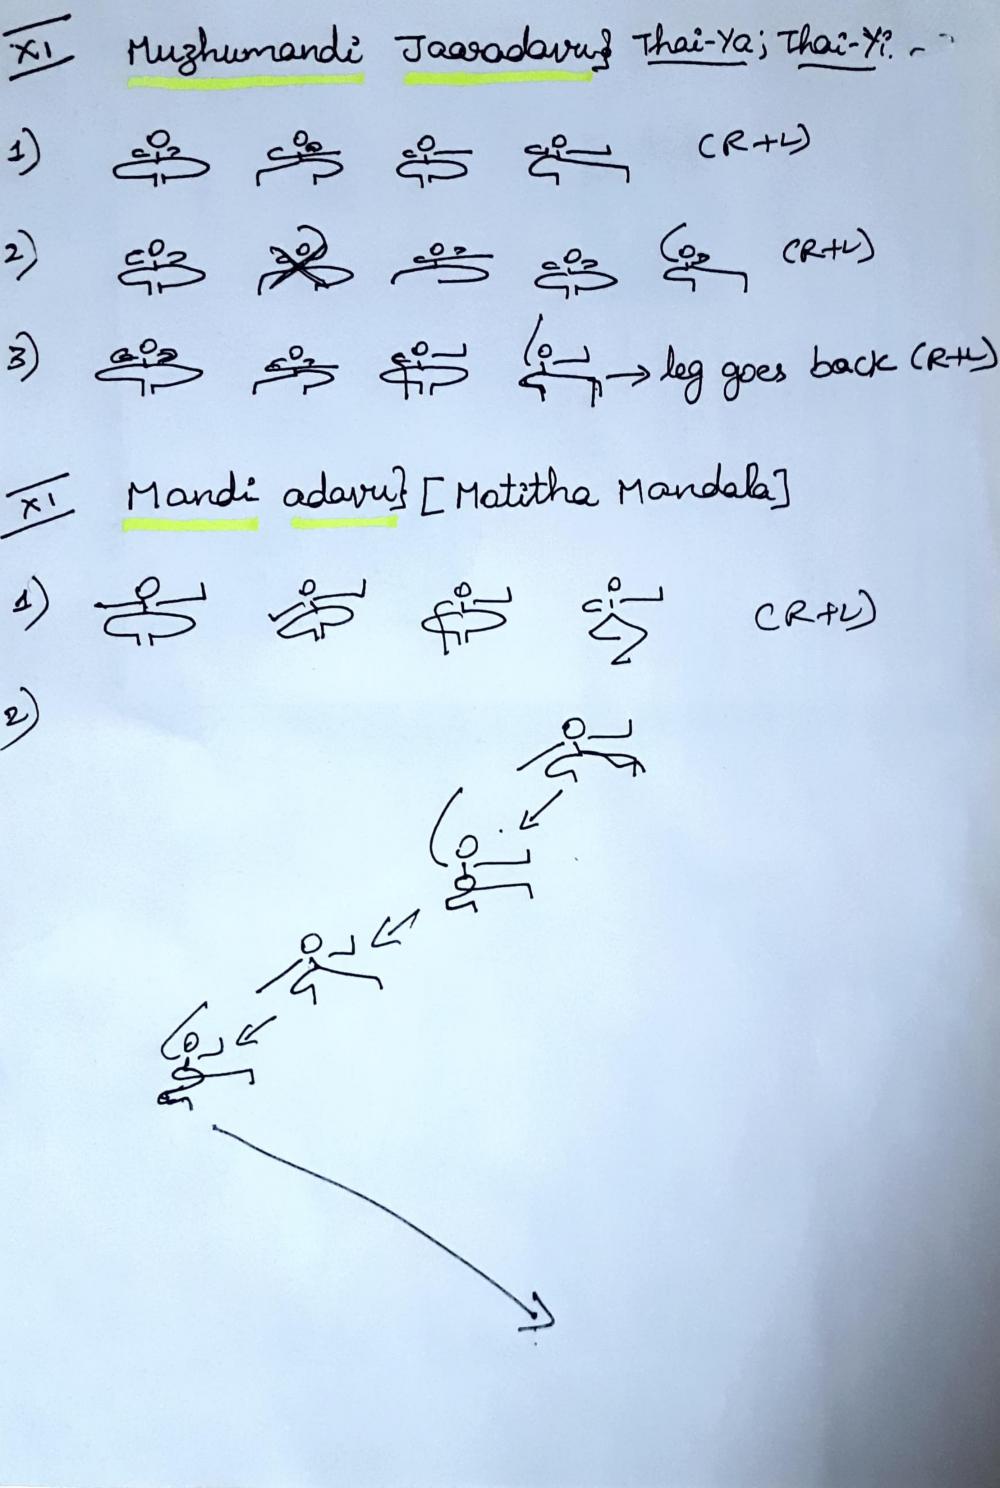 XI Muzhumandi Jaaradavu} Thai-Ya; Thai-Yi.
1) (R+L)
2) (R+L)
3) → leg goes back (R+L)
XI Mandi adavu} [Motitha Mandala]
1) (R+L)
2)